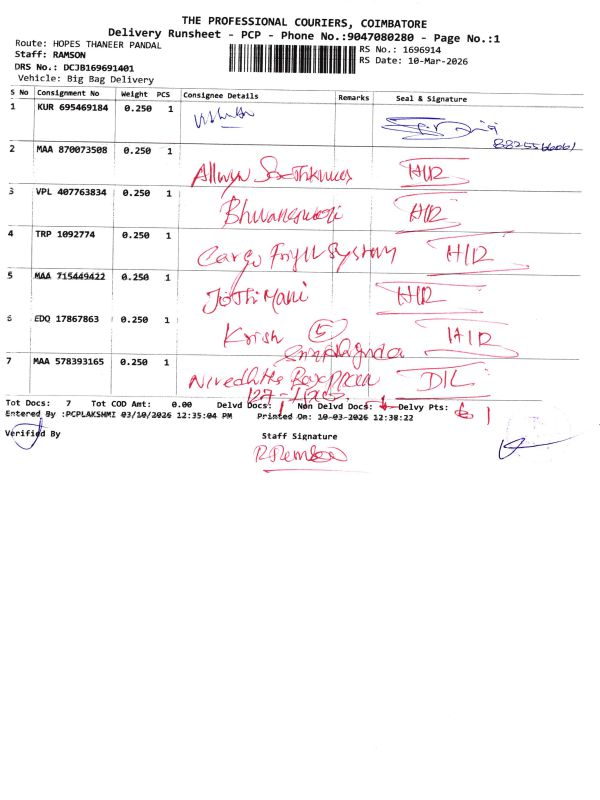 THE PROFESSIONAL COURIERS, COIMBATORE
Delivery Runsheet - PCP - Phone No.:9047080280 - Page No.:1
Route: HOPES THANEER PANDAL
RS No.: 1696914
Staff: RAMSON
RS Date: 10-Mar-2026
DRS No.: DCJB169691401
Vehicle: Big Bag Delivery
S No Consignment No Weight PCS Consignee Details Remarks Seal & Signature
1 KUR 695469184 0.250 1
8825566061
2 MAA 870073508 0.250 1
H/R
3 VPL 407763834 0.250 1
Bhuvaneswari H/R
4 TRP 1092774 0.250 1
Cargo System H/R
5 MAA 715449422 0.250 1
Jothi Mani H/R
6 EDQ 17867863 0.250 1
Krish 5 H/R
7 MAA 578393165 0.250 1
D/L
Tot Docs: 7 Tot COD Amt: 0.00 Delvd Docs: 1 Non Delvd Docs: Delvy Pts: 1
Entered By :PCPLAKSHMI 03/10/2026 12:35:04 PM Printed On: 10-03-2026 12:38:22
Verified By
Staff Signature